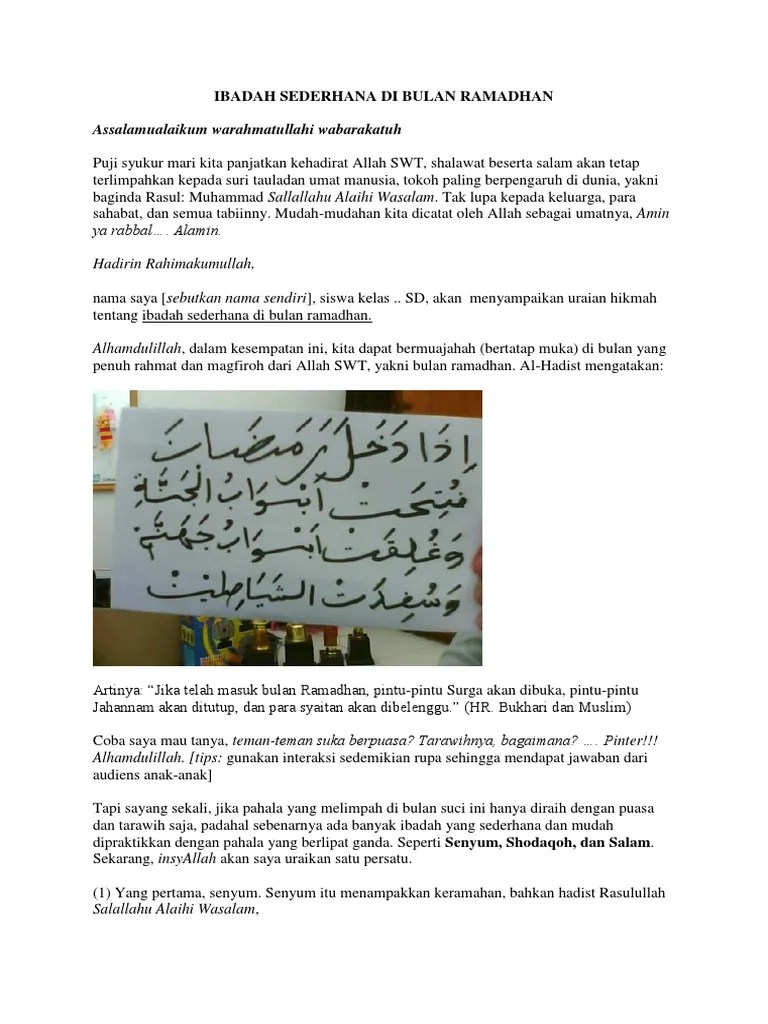 IBADAH SEDERHANA DI BULAN RAMADHAN
Assalamualaikum warahmatullahi wabarakatuh
Puji syukur mari kita panjatkan kehadirat Allah SWT, shalawat beserta salam akan tetap
terlimpahkan kepada suri tauladan umat manusia, tokoh paling berpengaruh di dunia, yakni
baginda Rasul: Muhammad Sallallahu Alaihi Wasalam. Tak lupa kepada keluarga, para
sahabat, dan semua tabiinny. Mudah-mudahan kita dicatat oleh Allah sebagai umatnya, Amin
ya rabbal…. Alamin.
Hadirin Rahimakumullah,
nama saya [sebutkan nama sendiri], siswa kelas .. SD, akan  menyampaikan uraian hikmah
tentang ibadah sederhana di bulan ramadhan.
Alhamdulillah, dalam kesempatan ini, kita dapat bermuajahah (bertatap muka) di bulan yang
penuh rahmat dan magfiroh dari Allah SWT, yakni bulan ramadhan. Al-Hadist mengatakan:
إِذَا دَخَلَ رَمَضَانَ
فُتِحَتْ أَبْوَابُ الْجَنَّةِ
وَغُلِقَتْ أَبْوَابُ جَهَنَّمَ
وَسُفِدَتْ الشَّيَاطِيْنْ
Artinya: “Jika telah masuk bulan Ramadhan, pintu-pintu Surga akan dibuka, pintu-pintu
Jahannam akan ditutup, dan para syaitan akan dibelenggu.” (HR. Bukhari dan Muslim)
Coba saya mau tanya, teman-teman suka berpuasa? Tarawihnya, bagaimana? …. Pinter!!!
Alhamdulillah. [tips: gunakan interaksi sedemikian rupa sehingga mendapat jawaban dari
audiens anak-anak]
Tapi sayang sekali, jika pahala yang melimpah di bulan suci ini hanya diraih dengan puasa
dan tarawih saja, padahal sebenarnya ada banyak ibadah yang sederhana dan mudah
dipraktikkan dengan pahala yang berlipat ganda. Seperti Senyum, Shodaqoh, dan Salam.
Sekarang, insyAllah akan saya uraikan satu persatu.
(1) Yang pertama, senyum. Senyum itu menampakkan keramahan, bahkan hadist Rasulullah
Salallahu Alaihi Wasalam,